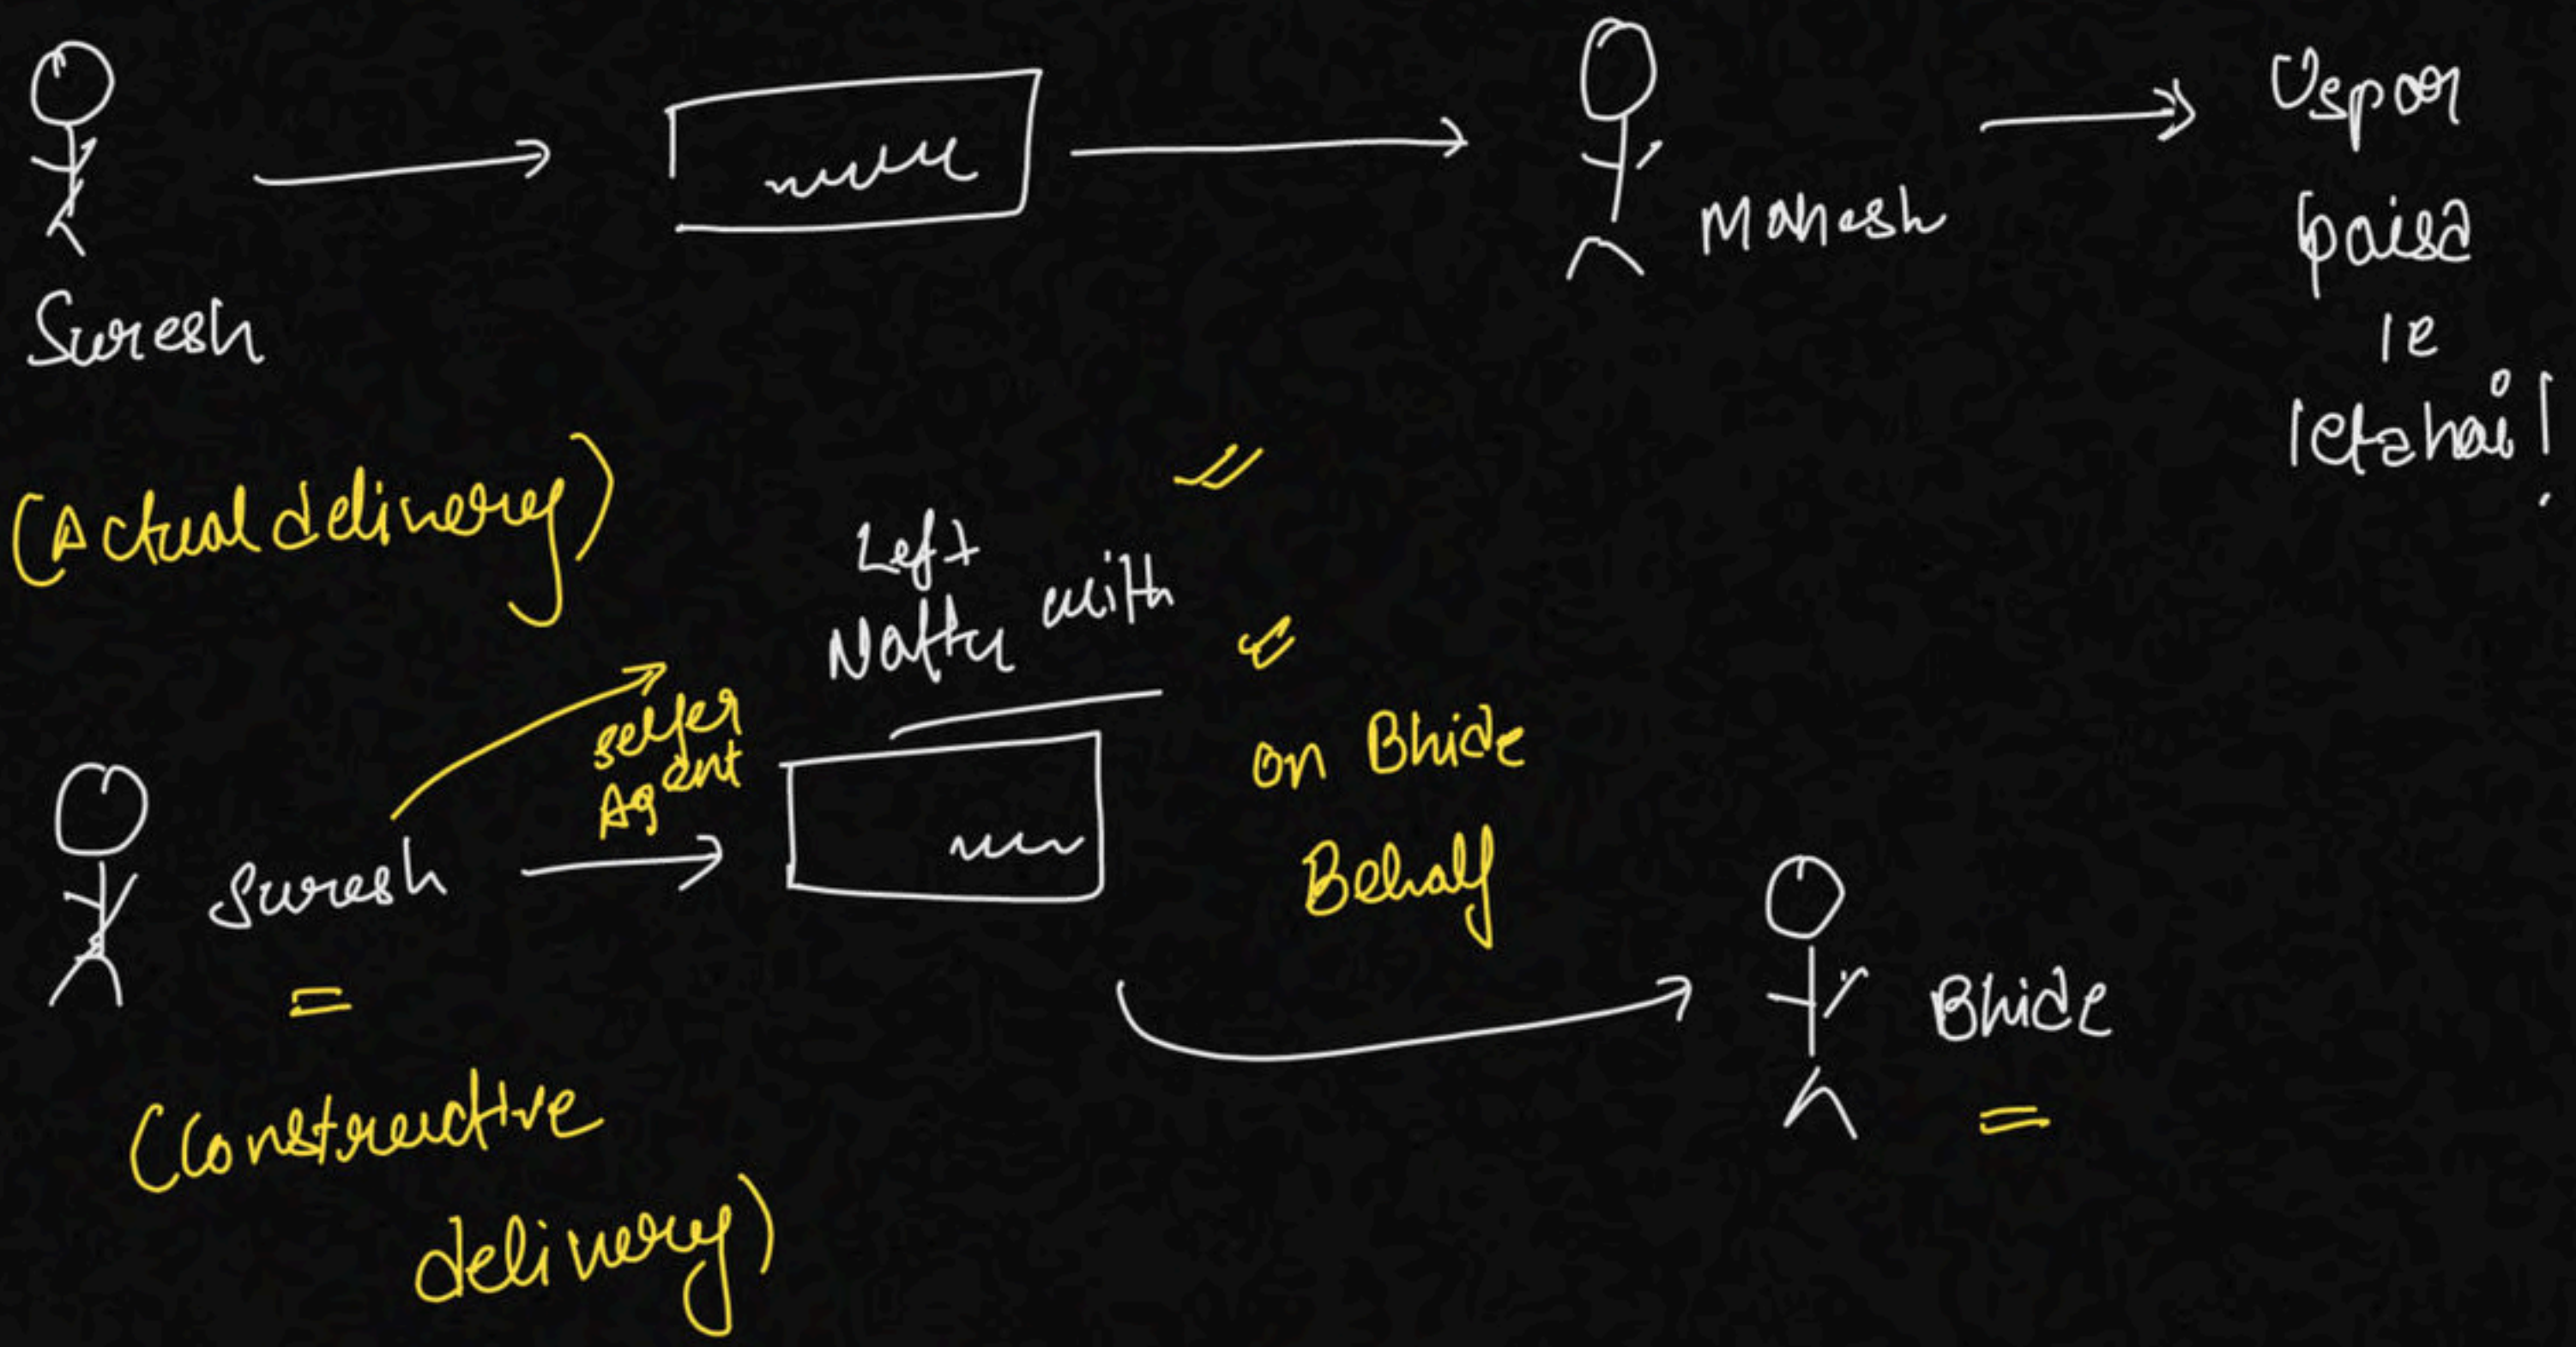 Suresh
Mahesh
Uspar
paisa
le
leta hai!
(Actual delivery)
Left
Nattu with
seller
Agent
on Bhide
Behalf
Suresh
Bhide
(Constructive
delivery)